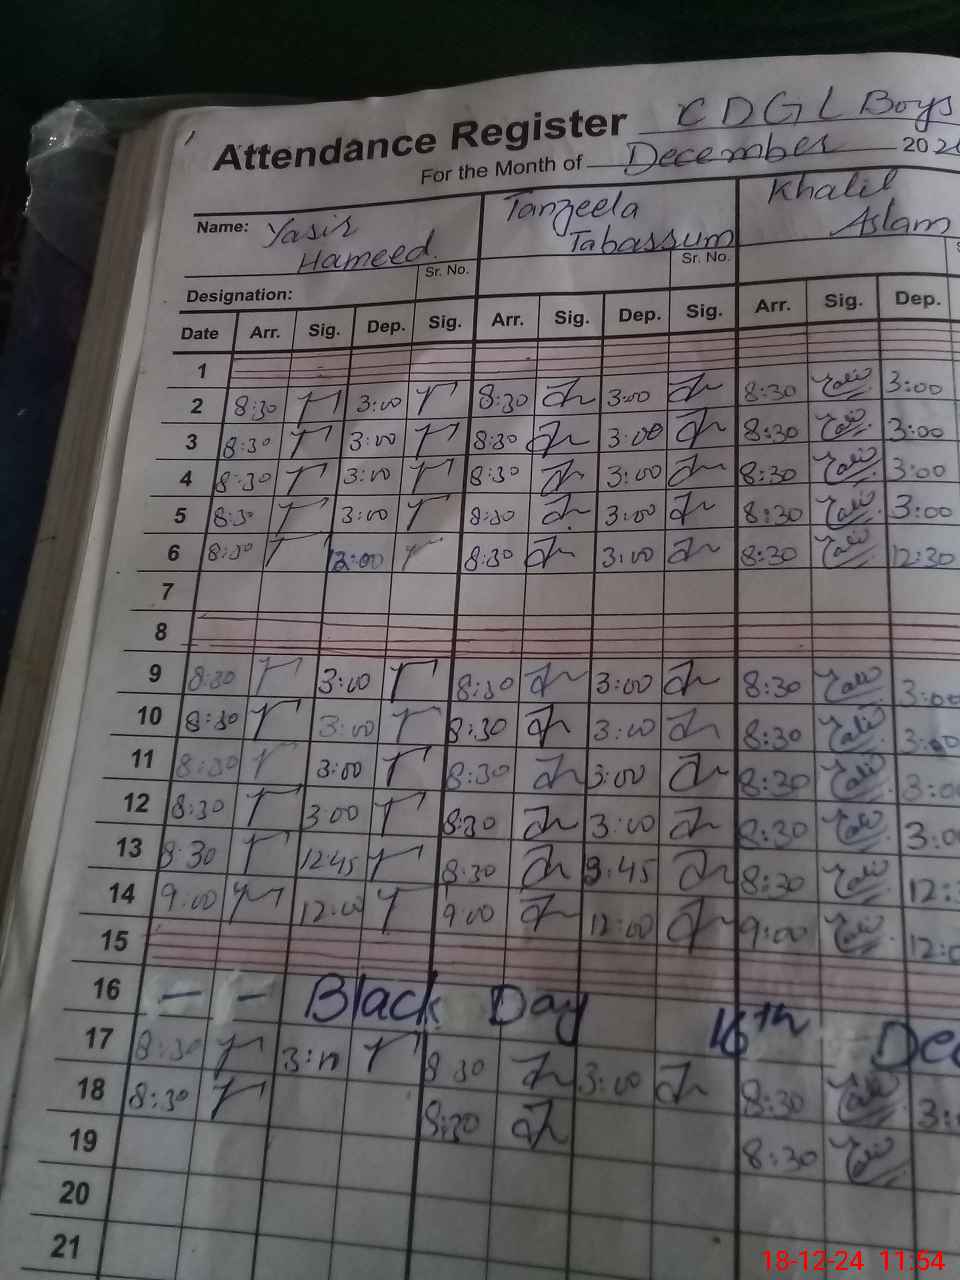 Attendance Register CDGL Boys
For the Month of December 202
Name: Yasir Hameed Tanzeela Tabassum Khalil Aslam
Sr. No. Sr. No.
Designation:
Date Arr. Sig. Dep. Sig. Arr. Sig. Dep. Sig. Arr. Sig. Dep.
1
2 8:30 3:00 8:30 3:00 8:30 3:00
3 8:30 3:00 8:30 3:00 8:30 3:00
4 8:30 3:00 8:30 3:00 8:30 3:00
5 8:30 3:00 8:30 3:00 8:30 3:00
6 8:30 12:00 8:30 3:00 8:30 12:30
7
8
9 8:30 3:00 8:30 3:00 8:30 3:00
10 8:30 3:00 8:30 3:00 8:30 3:00
11 8:30 3:00 8:30 3:00 8:30 3:00
12 8:30 3:00 8:30 3:00 8:30 3:0
13 8:30 12:45 8:30 8:30 12:
14 9:00 12:00 9:00 12:00 9:00 12:0
15
16 — — Black Day 16th Dec
17 8:30 3:00 8:30 3:00 8:30 3:
18 8:30 8:30 8:30
19
20
21
18-12-24 11:54